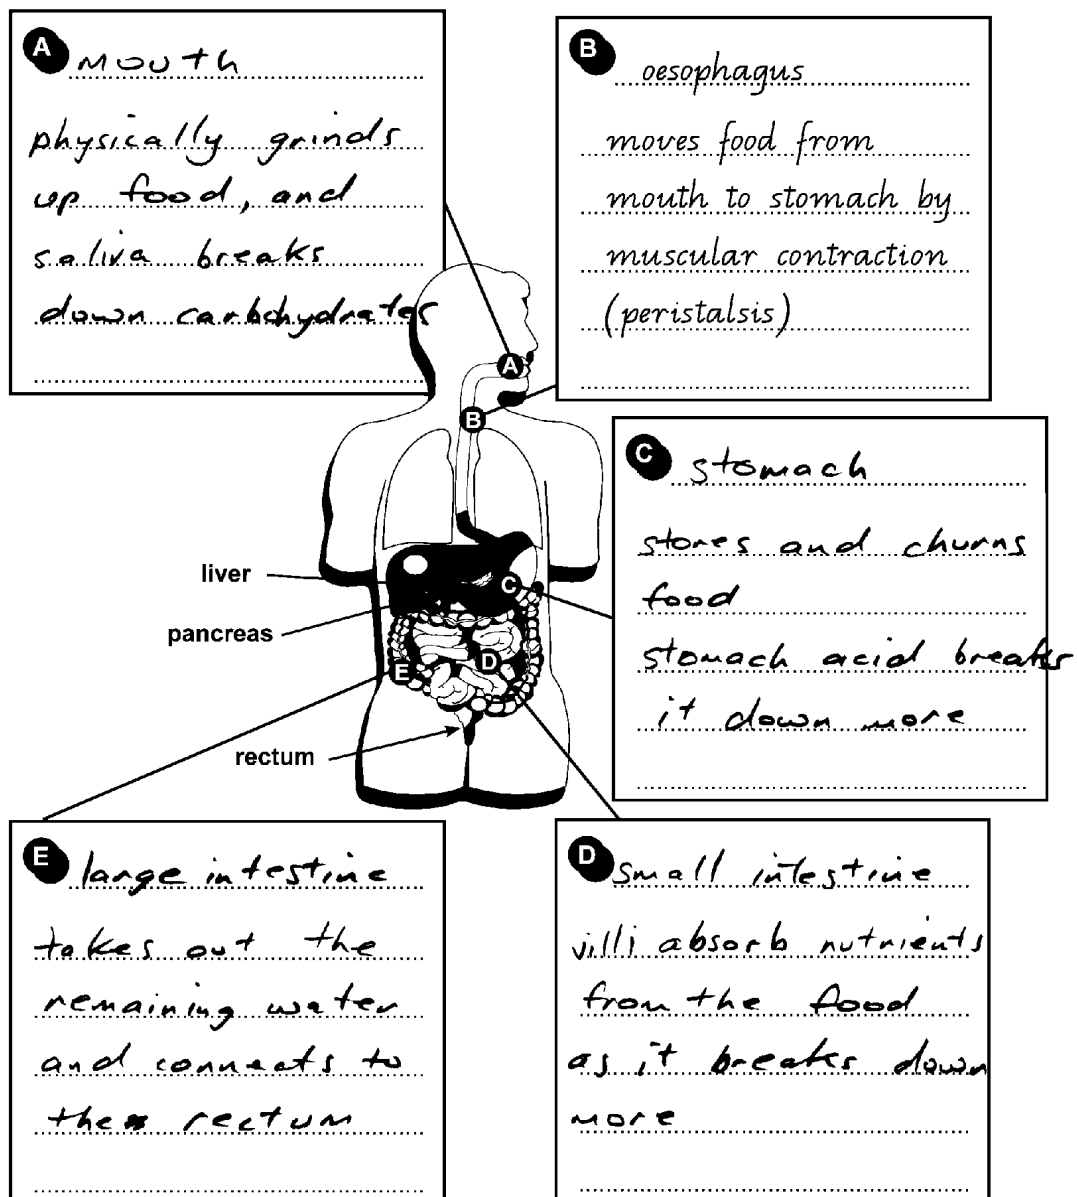 A mouth
physically grinds
up food, and
saliva breaks
down carbohydrates
B oesophagus
moves food from
mouth to stomach by
muscular contraction
(peristalsis)
A
B
C stomach
stores and churns
food
stomach acid breaks
it down more
liver
C
pancreas
D
E
rectum
E large intestine
takes out the
remaining water
and connects to
the rectum
D small intestine
villi absorb nutrients
from the food
as it breaks down
more